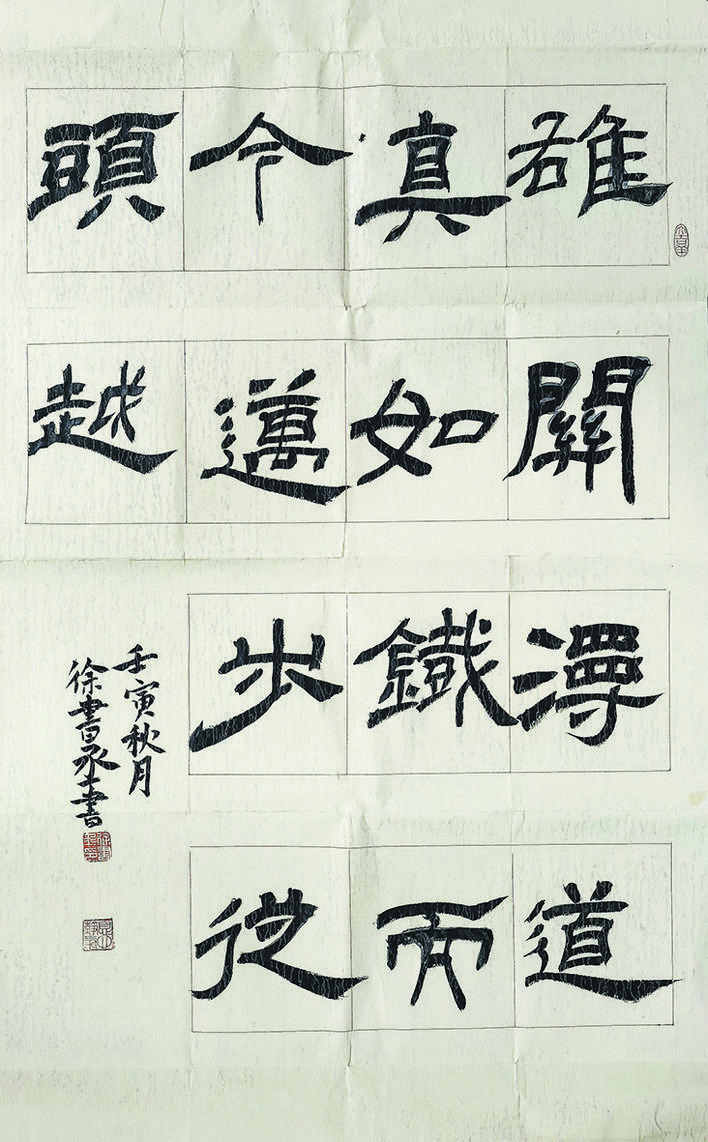 雄關漫道
真如鐵而
今邁步從
頭越
壬寅秋月
徐書書